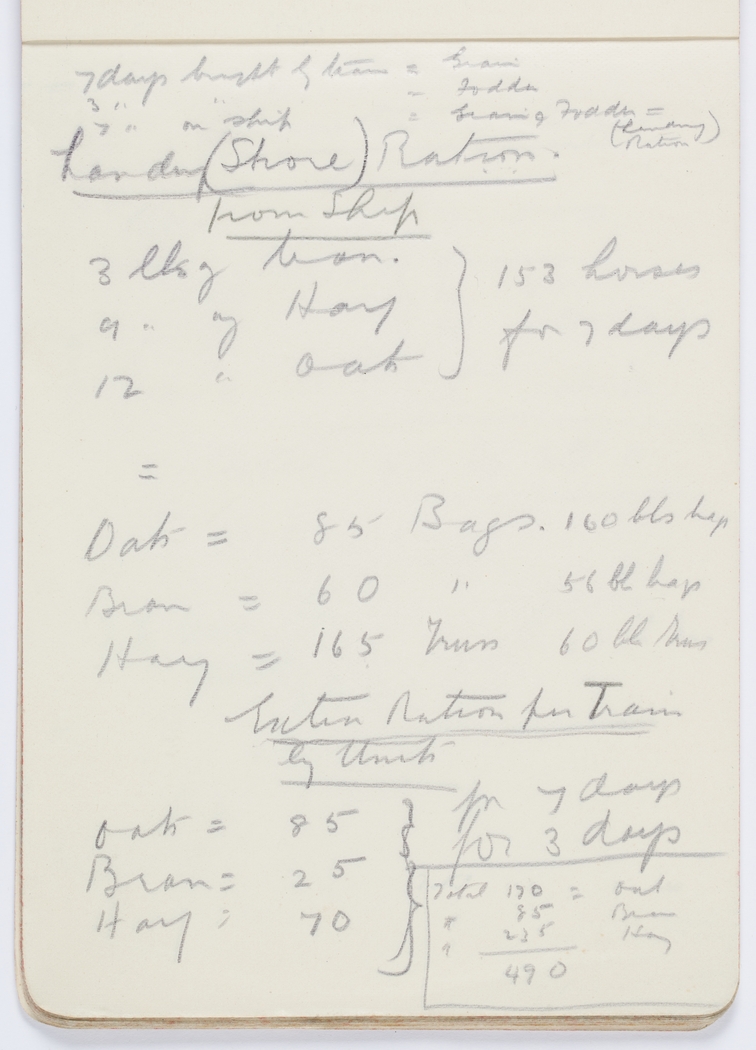 7 days brought by train = Grain
3 " " = Fodder
7 " on ship = Grain & Fodder = (Landing Ration)
Landing (Shore) Ration.
from Ship
3 lbs of bran.
9 " of Hay
12 " oats
} 153 horses
for 7 days
=
Oats = 85 Bags. 160 lbs bags
Bran = 60 " 56 lb bags
Hay = 165 Truss 60 lb Truss
Extra Ration per Train
by Units
oats = 85 } for 7 days
Bran = 25 } for 3 days
Hay = 70
Total 170 = oat
" 85 Bran
" 235 Hay
490